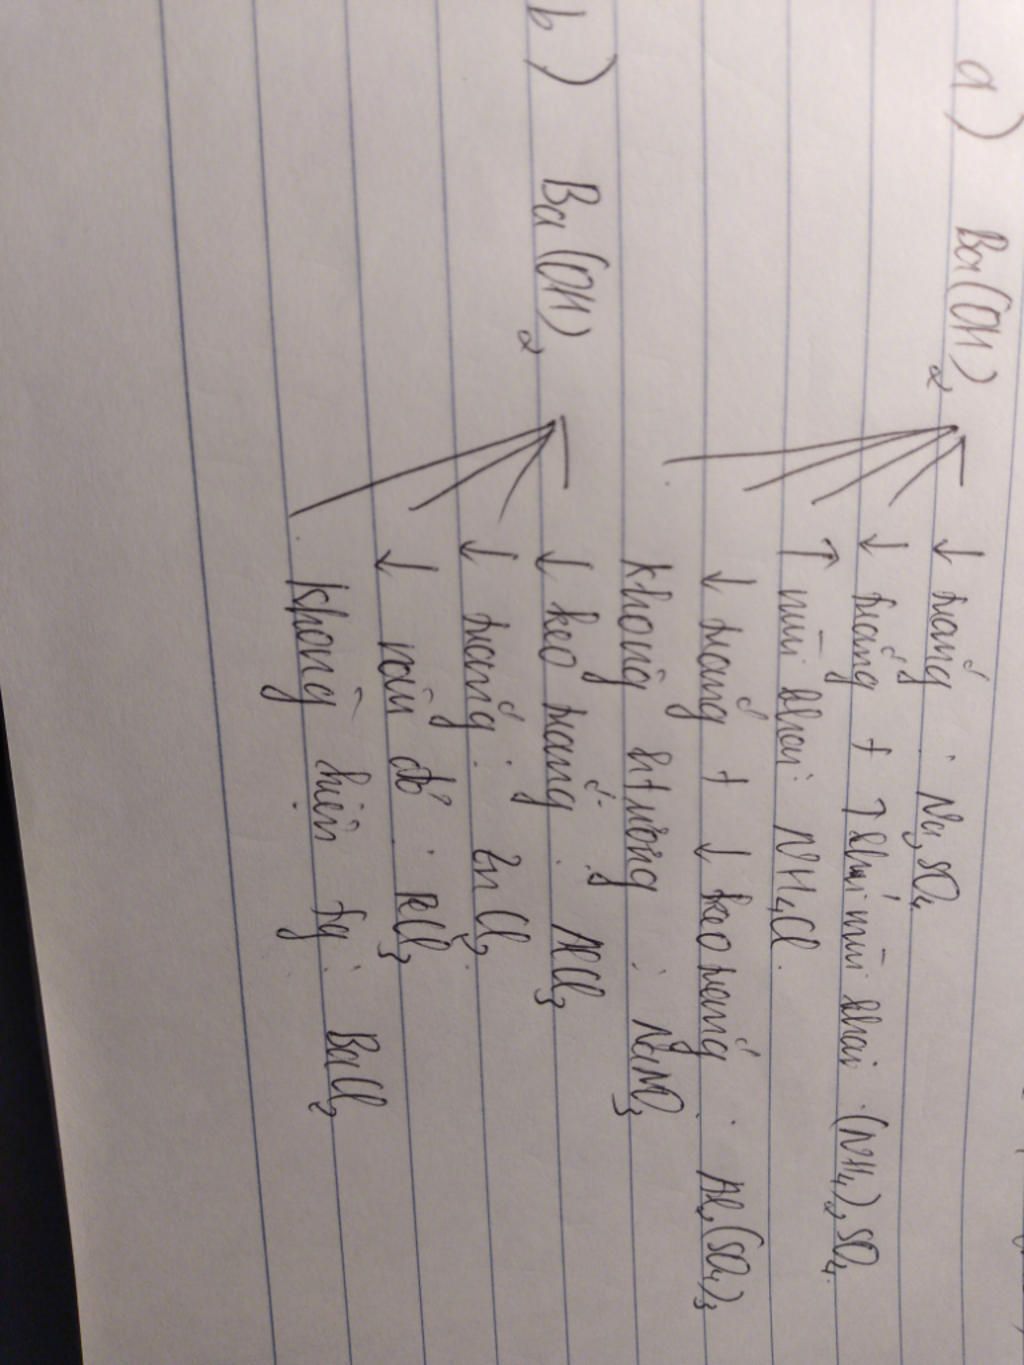 a) Ba(OH)2 ↓ trắng : Na2SO4
↓ trắng + ↑ khí mùi khai : (NH4)2SO4.
↑ mùi khai NH4Cl.
↓ trắng + ↓ keo trắng : Al2(SO4)3
không htượng : NaNO3
b) Ba(OH)2 ↓ keo trắng : AlCl3
↓ trắng : ZnCl2
↓ nâu đỏ : FeCl3
không hiện tg : BaCl2